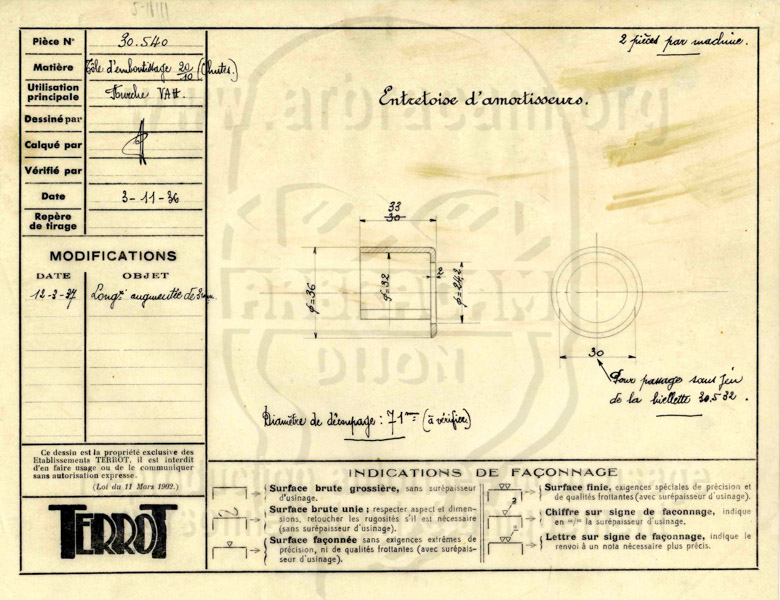 Pièce N° 30.540
Matière Tôle d'emboutissage 20/10 (Chutes.)
Utilisation principale Fourche VAH.
Dessiné par
Calqué par
Vérifié par
Date 3-11-36
Repère de tirage
MODIFICATIONS
DATE OBJET
12-3-37 Longr augmentée de 3mm.
Ce dessin est la propriété exclusive des
Etablissements TERROT, il est interdit
d'en faire usage ou de le communiquer
sans autorisation expresse.
(Loi du 11 Mars 1902.)
TERROT
2 pièces par machine.
Entretoise d'amortisseurs.
33
30
φ=36
φ=32
2
φ=24,2
30
Pour passage sans jeu
de la biellette 30.532.
Diamètre de découpage : 71mm (à vérifier)
INDICATIONS DE FAÇONNAGE
Surface brute grossière, sans surépaisseur
d'usinage.
Surface brute unie ; respecter aspect et dimen-
sions, retoucher les rugosités s'il est nécessaire
(sans surépaisseur d'usinage).
Surface façonnée sans exigences extrêmes de
précision, ni de qualités frottantes (avec surépais-
seur d'usinage).
Surface finie, exigences spéciales de précision et
de qualités frottantes (avec surépaisseur d'usinage).
Chiffre sur signe de façonnage, indique
en m/m la surépaisseur d'usinage.
Lettre sur signe de façonnage, indique le
renvoi à un nota nécessaire plus précis.
www.arbracam.org
ARBRACAM
DIJON